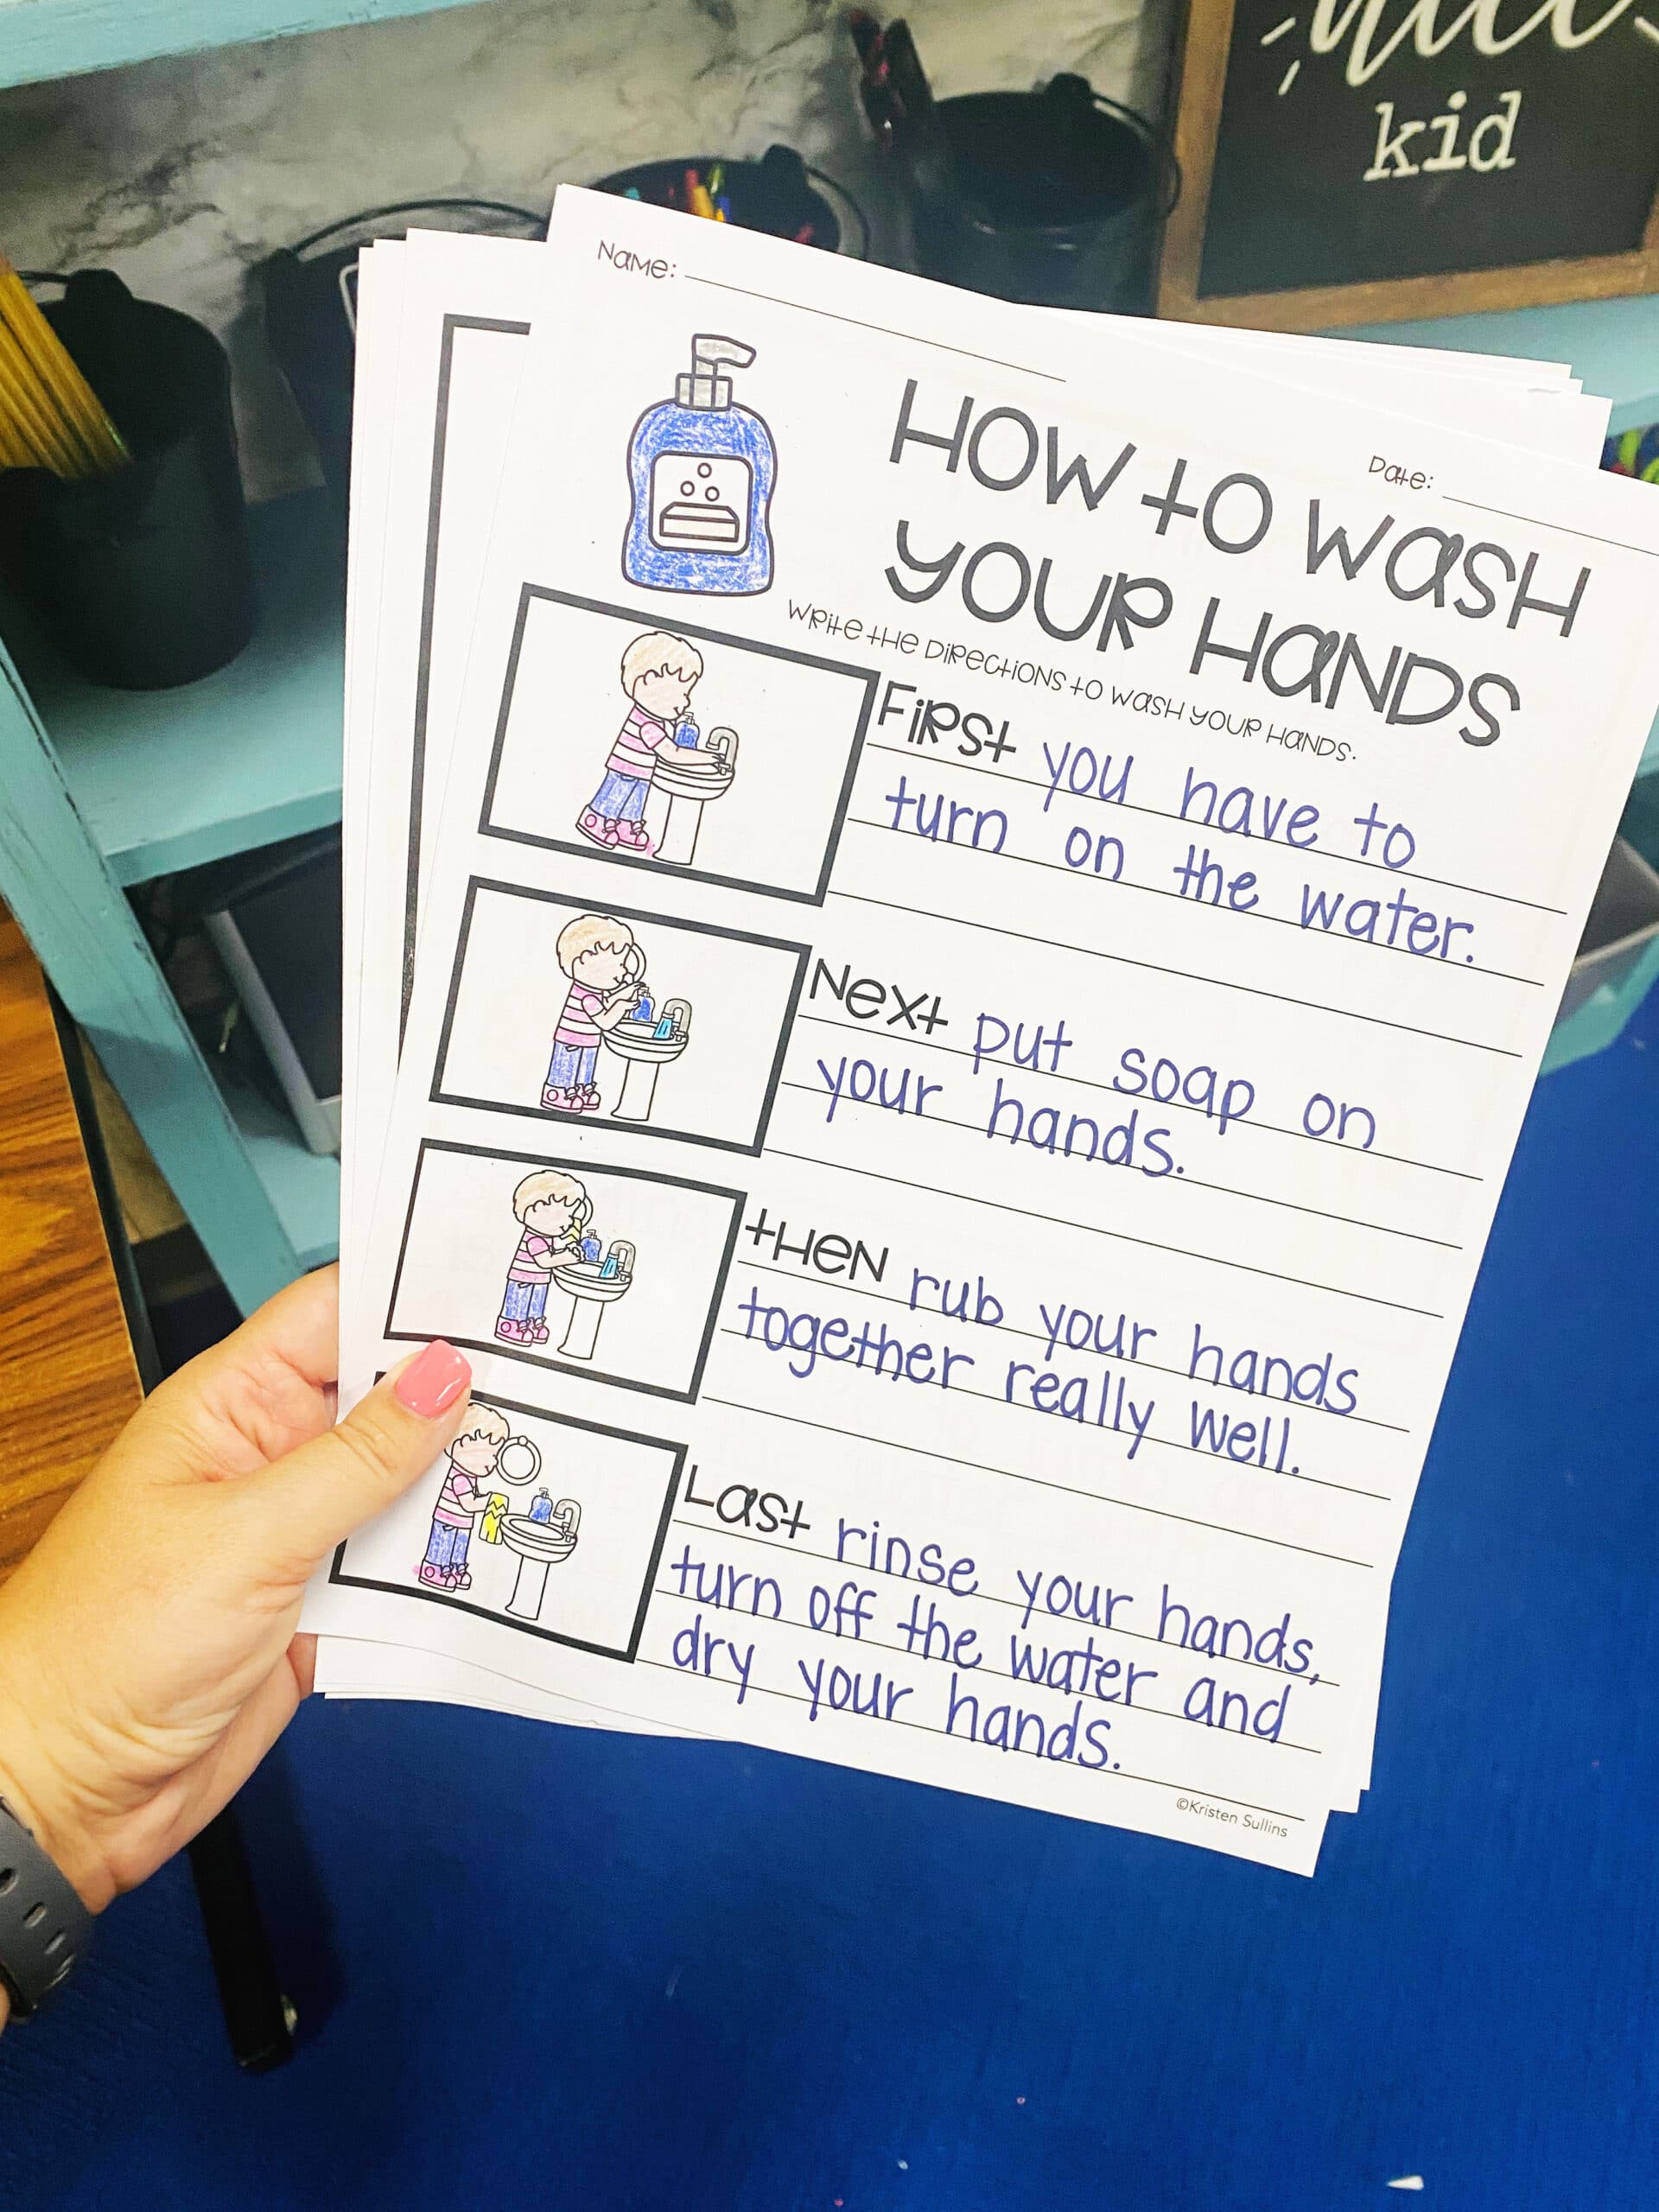 kid
Name:
Date:
How to wash
your hands
Write the directions to wash your hands.
First you have to
turn on the water.
Next put soap on
your hands.
Then rub your hands
together really well.
Last rinse your hands,
turn off the water and
dry your hands.
©Kristen Sullins